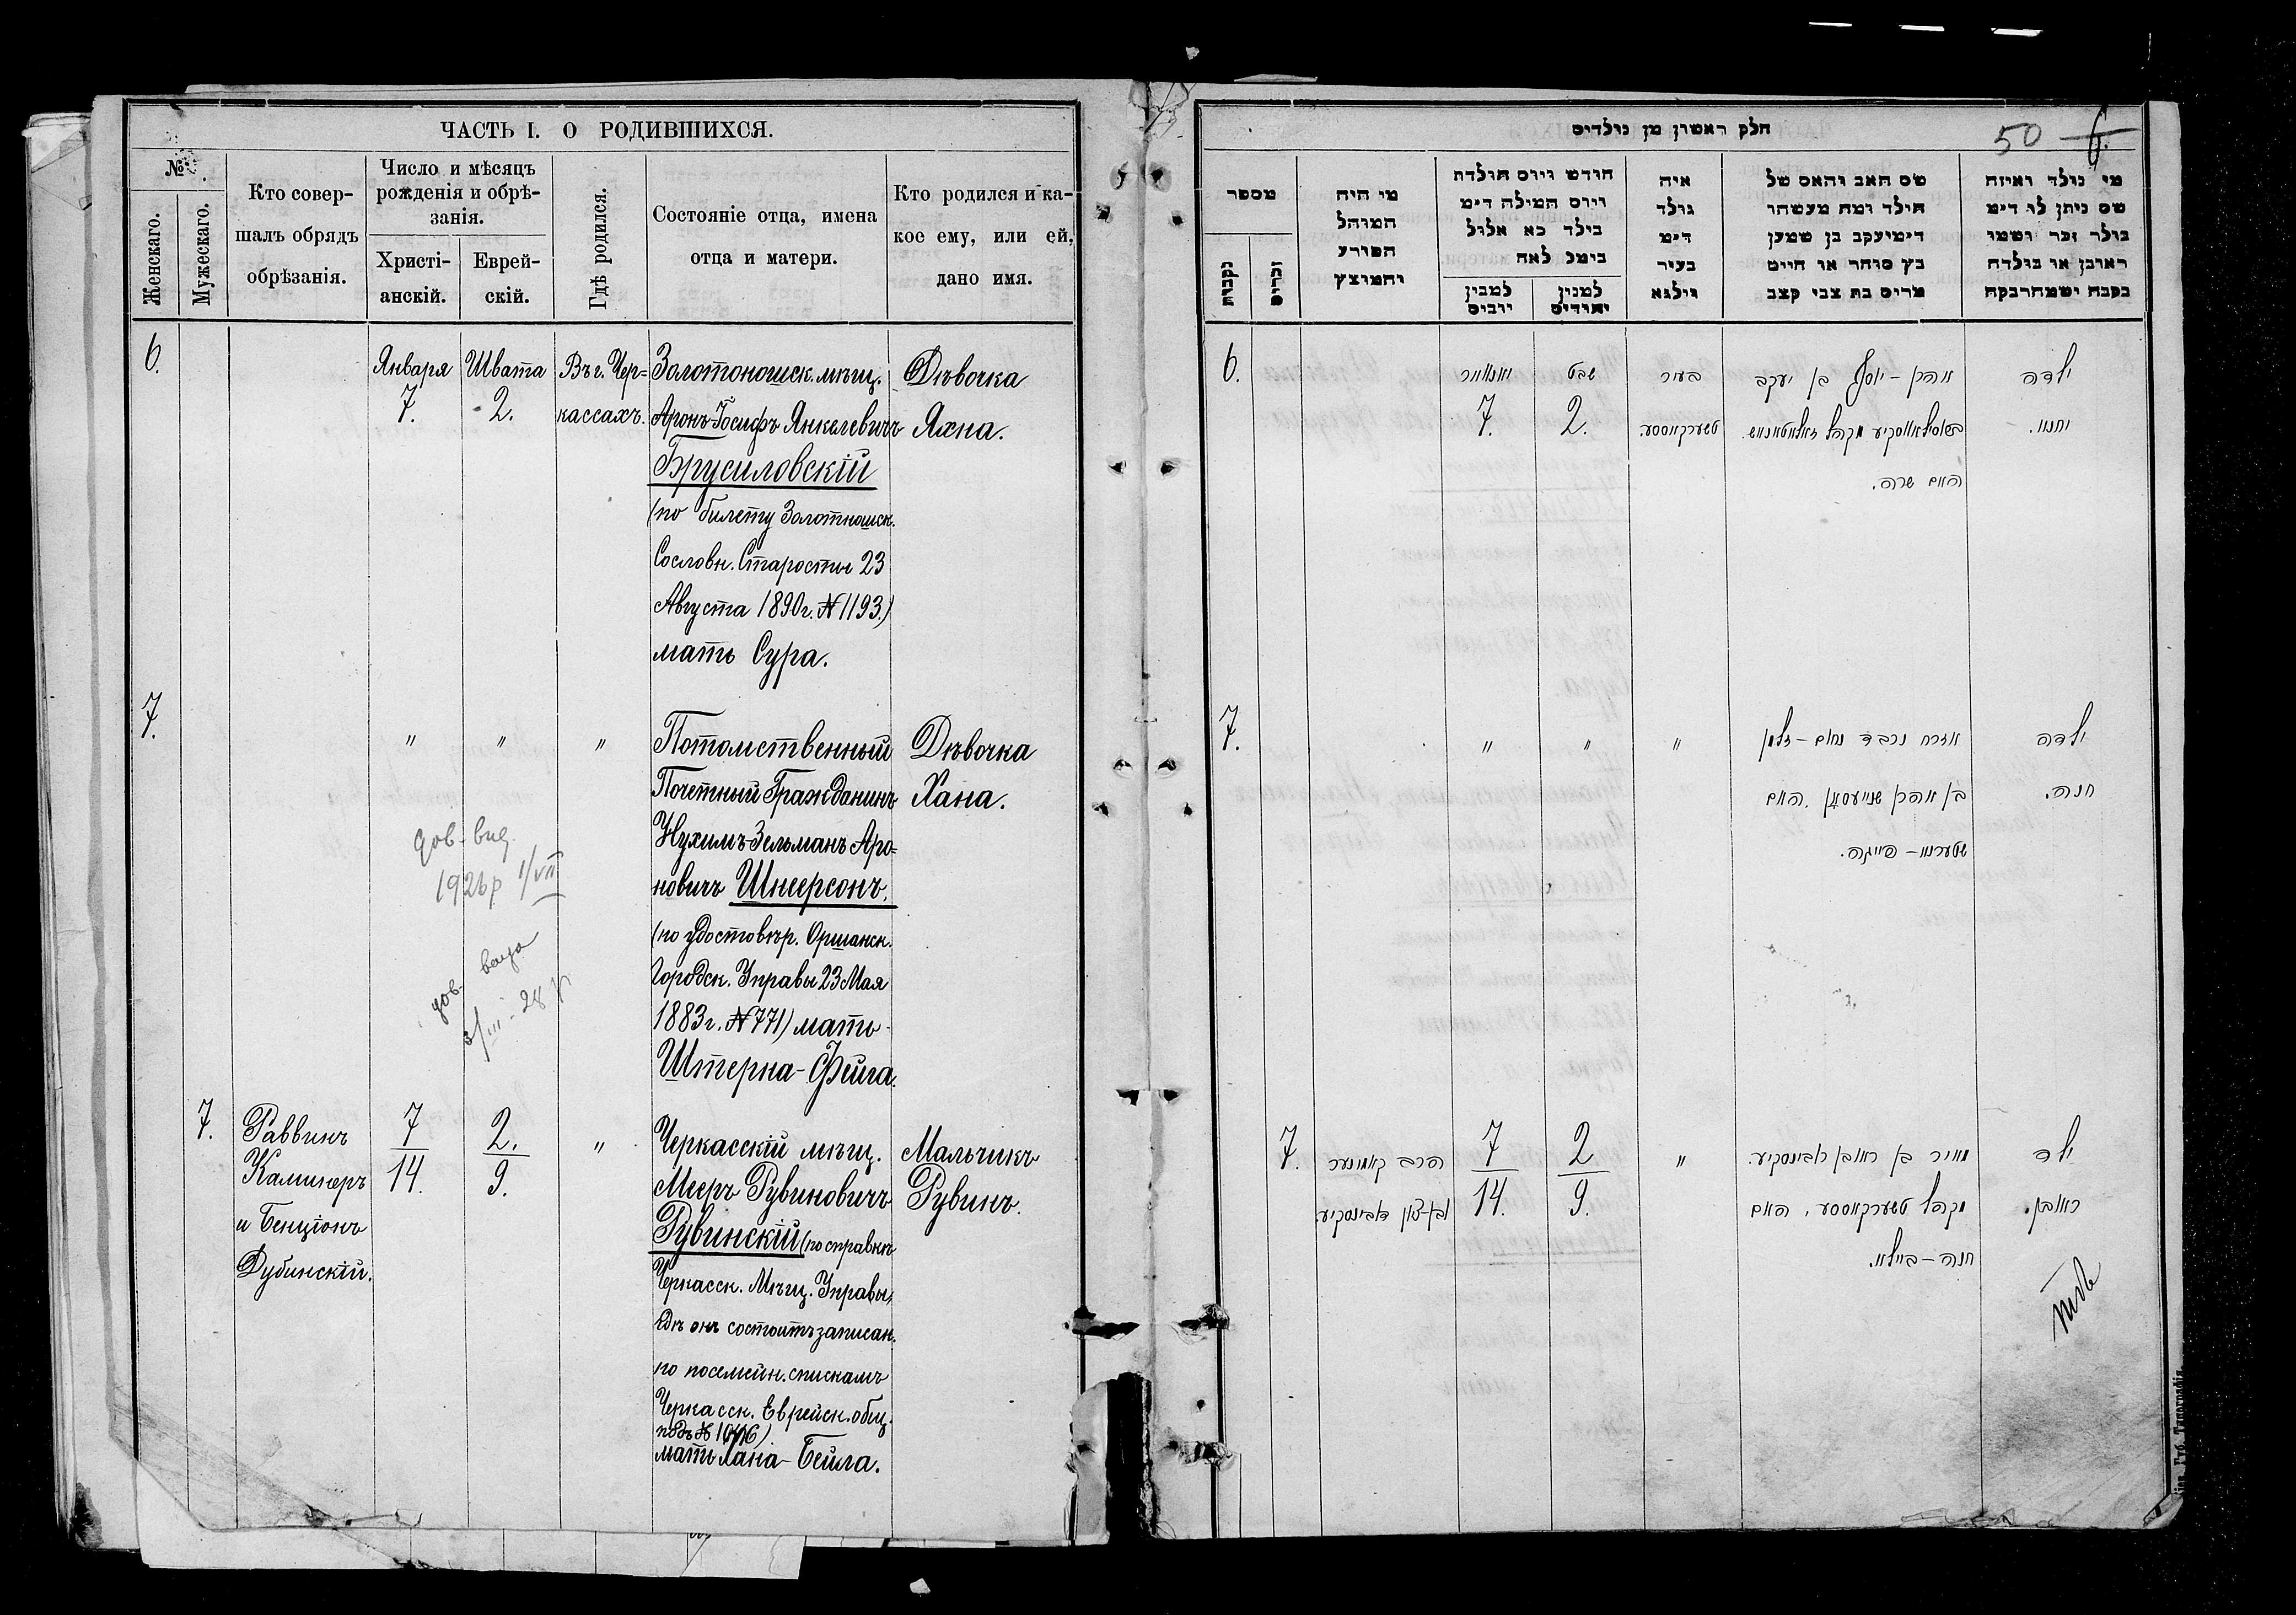 ЧАСТЬ I. О РОДИВШИХСЯ.
№
Женскаго.
Мужескаго.
Кто совер-
шалъ обрядъ
обрѣзанія.
Число и мѣсяцъ
рожденія и обрѣ-
занія.
Христі-
анскій.
Еврей-
скій.
Гдѣ родился.
Состояніе отца, имена
отца и матери.
Кто родился и ка-
кое ему, или ей,
дано имя.
6.
Января
7.
Швата
2.
Въ г. Чер=
кассахъ.
Золотоношск. мѣщ.
Аронъ-Іосифъ Янкелевичъ
Брусиловскій
(по билету Золотношск.
Сословн. Старосты 23
Августа 1890г. № 1193.)
мать Сура.
Дѣвочка
Яхна.
7.
" " "
Потомственный
Почетный Гражданинъ
Нухимъ-Зельманъ Аро=
новичъ Шнеерсонъ.
(по удостовѣр. Оршанск.
Городск. Управы 23 Мая
1883г. № 771) мать
Штерна-Фейга.
Дѣвочка
Хана.
дов. вид.
1926р 1/VII
дов.
3/III-28
7.
Раввинъ
Каминеръ
и Бенціонъ
Дубинскій.
7
14.
2.
9.
"
Черкасскій мѣщ.
Мееръ Рувиновичъ
Рувинскій (по справкѣ
Черкасск. Мѣщ. Управы,
гдѣ онъ состоитъ записан.
по посемейн. спискамъ
Черкасск. Еврейск. общ.
подъ №
мать Хана-Бейла.
Мальчикъ
Рувинъ.
חלק ראשון מן נולדים
50 6.
מספר
נקבות
זכרים
מי היה
המוהל
הפורע
והמוצץ
חודש ויום תולדת
ויום המילה דימ
בילד כא אלול
בימל לאה
למנין
יהודים
איה
נולד
דימ
בעיר
ווילנא
שם האב והאם של
הילד ומה מעשהו
דימיעקב בן שמען
בץ סוחר או חייט
מרים בת צבי קצב
מי נולד ואיזה
שם ניתן לו דימ
בולד זכר ושמו
ראובן או בולדה
נקבה ושמה רבקה
6.
יאנואר
7.
שבט
2.
בעיר
טשערקאסס.
אהרן-יוסף בן יעקב
האם שרה.
ילדה
יחנא.
7.
" " "
אזרח נכבד נחום-זלמן
בן אהרן שנייערסאן, האם
שטערנא-פייגה.
ילדה
חנה.
7.
הרב קאמינער
ובן-ציון דובינסקי.
7
14.
2
9.
"
מאיר בן ראובן ראבינסקיע.
מקהל טשערקאסס, האם
חנה-ביילא.
ילד
ראובן.